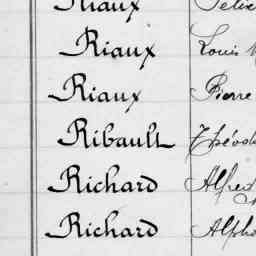 Riaux
Riaux Louis
Riaux Pierre
Ribault
Richard Alfred
Richard